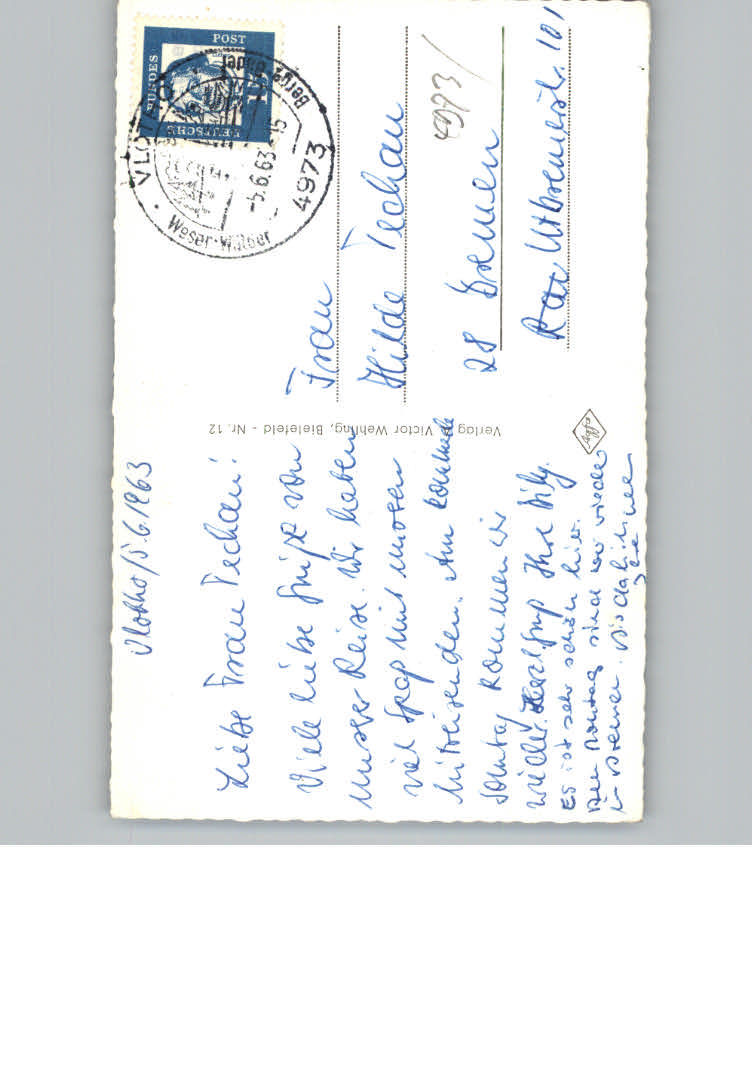 Vlotho/5.6.1963
Liebe Frau Techau!
Viele liebe Grüße von
unserer Reise. Wir haben
viel Spaß mit unseren
Mitreisenden. Am kommende
Sonntag kommen wir
wieder. Herzl. Gruß Ihre
Es ist sehr schön hier.
Am Montag sind wir wieder
in Bremen. Bis dahin
Verlag Victor Wehling, Bielefeld - Nr. 12
Agfa
DEUTSCHE
BUNDES
POST
VLOTHO
4973
-5.6.63-15
Weser·Wälder
Berge Bäder
4973/
Frau
Hilde Techau
28 Bremen
Utbremerstr. 101